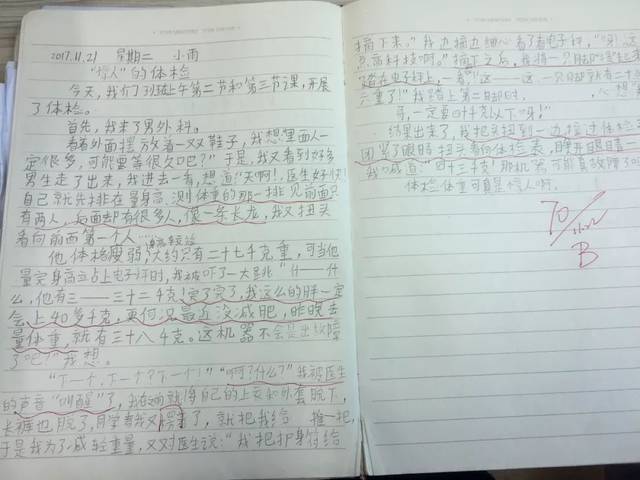 2017.11.21 星期二 小雨
"惊人"的体检
今天,我们班上午第二节和第三节课,开展
了体检。
首先,我来了男外科。
看着外面摆放着一双双鞋子,我想:里面人一
定很多,可能要等很久吧?"于是,我又看到好多
男生走了出来,我进去一看,想道:"天啊!医生好快!
自己就先排在量身高、测体重的那一排,见前面只
有两人,后面却有很多人,像一条长龙,我又扭头
看向前面第一个人
他体格瘦弱,大约只有二十七千克重,可当他
量完身高,立占上电子秤时,我被吓了一大跳"什——什
么,他有三——三十二千克!完了完了,我这么的胖一定
会上40多千克,更何况最近没减肥,昨晚去
量体重,就有三十八千克。这机器不会是出故障
了吧!"我想。
"下一个,下一个?下一个!""啊?什么?"我被医生
的声音"叫醒"了,我立刻就将自己的上衣和外套脱下,
长裤也脱了,同学看我又愣了,就把我给推一把,
于是我为了减轻重量,又对医生说:"我把护身符给
摘下来。"我边摘边细心看了看电子秤,"呀,这
高科技啊。"摘下之后,我将一只脚
踏在电子秤上,一看"这——这,一只脚就有二十
六重了!"我踏上第二只脚时, 心想
哥,一定要四十千克以下呀!
结果出来了,我把头扭到一边接过体检
闭紧了眼睛扭头看向体检表,睁开眼睛一
我喊道:"四十三千克!那机器可能真故障了
体检体重可真是惊人啊。
70
11.22
B